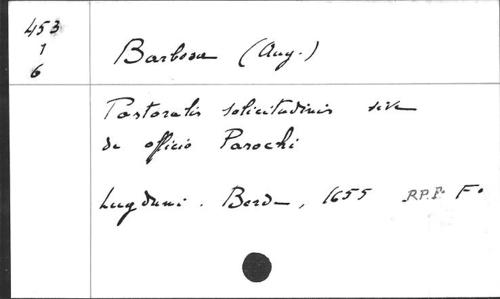 453
1
6
Barbosa (Aug.)
Pastoralis solicitudinis sive
de officio Parochi
Lugduni. Borde, 1655 R.P.F. Fº